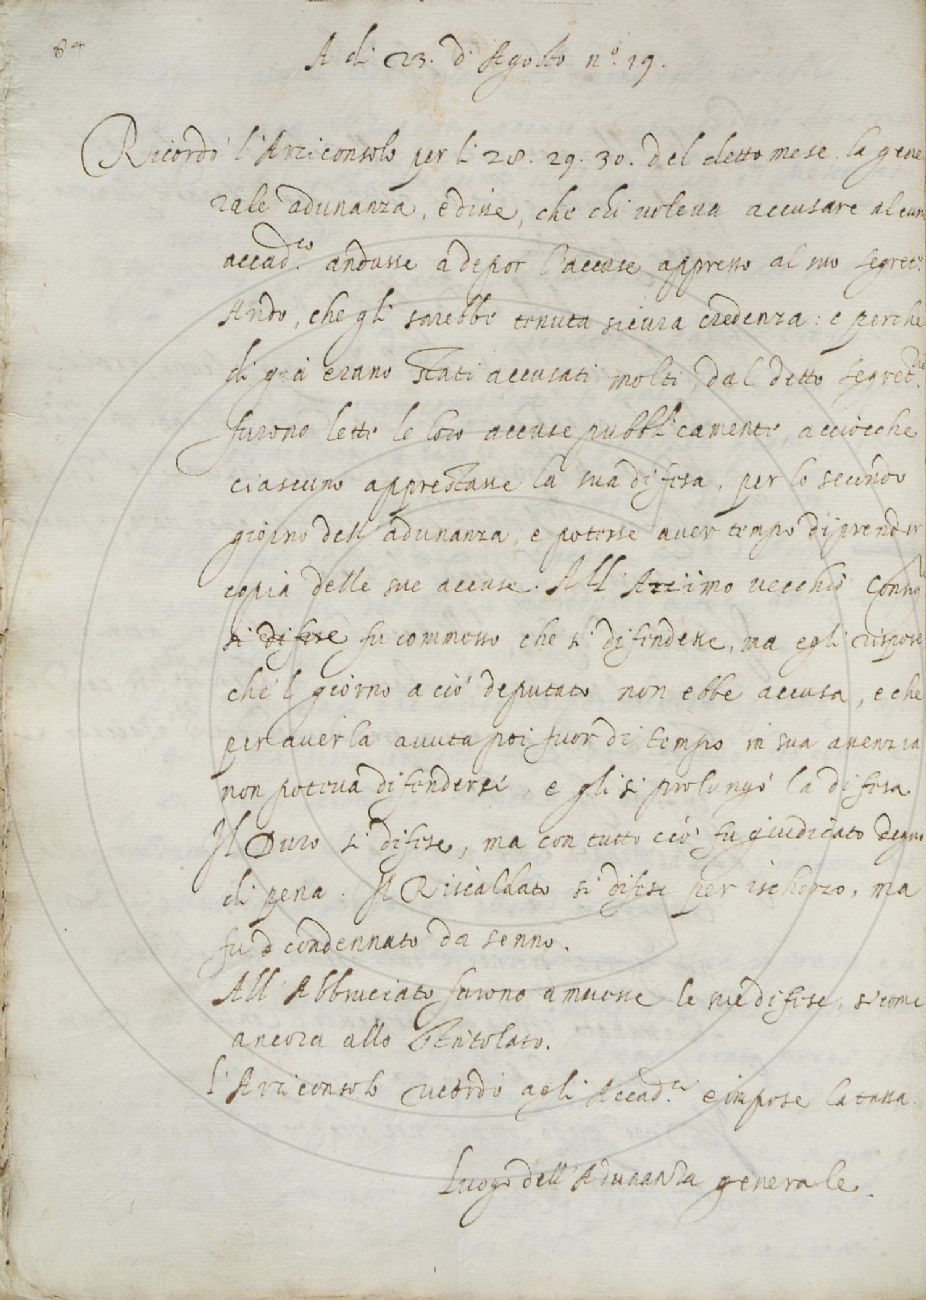 84
A di 23. d'Agosto n.º 19.
Ricordò l'Arziconsolo per li 28. 29. 30. del detto mese la gene
rale adunanza, e disse, che chi voleva accusare alcun
accad.co andasse a depor l'accuse appresso al suo segret.º
Ardo, che gli sarebbe tenuta sicura credenza: e perche
di già erano stati accusati molti, dal detto segret.
furono lette le loro accuse pubblicamente, acciocche
ciascuno apprestasse la sua difesa, per lo secondo
giorno dell'adunanza, e potesse aver tempo di prender
copia delle sue accuse. All'Azzimo vecchio Conso
si difese fu commesso che si difendesse, ma egli rispose
che 'l giorno a ciò deputato non ebbe accusa, e che
per averla avuta poi fuor di tempo in sua assenzia
non poteva difendersi, e gli si prolungò la difesa
Il Duro si difese, ma con tutto ciò fu giudicato degno
di pena. Il Riscaldato si difese per ischerzo, ma
fu condennato da senno.
All'Abbruciato furono ammesse le sue difese, si come
ancora allo Intolato.
l'Arziconsolo ricordò agli Accad.ci e impose la tassa.
Luogo dell'Adunanza generale.